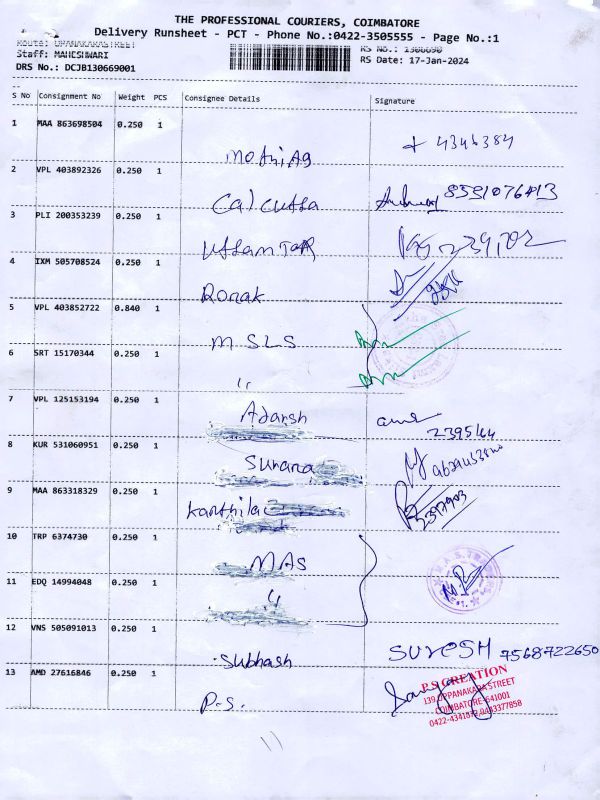 THE PROFESSIONAL COURIERS, COIMBATORE
Delivery Runsheet - PCT - Phone No.:0422-3505555 - Page No.:1
Staff: MAHESHWARI
DRS No.: DCJB130669001
RS Date: 17-Jan-2024
S No Consignment No Weight PCS Consignee Details Signature
1 MAA 863698504 0.250 1 4346384
2 VPL 403892326 0.250 1 Calcutta
3 PLI 200353239 0.250 1
4 IXM 505708524 0.250 1 Ronak
5 VPL 403852722 0.840 1 M SLS
6 SRT 15170344 0.250 1 "
7 VPL 125153194 0.250 1 Adarsh
8 KUR 531060951 0.250 1
9 MAA 863318329 0.250 1
10 TRP 6374730 0.250 1 MAS
11 EDQ 14994048 0.250 1 "
12 VNS 505091013 0.250 1 Subhash SURESH 7568722650
13 AMD 27616846 0.250 1 P.S.
P.S CREATION
139, OPPANAKARA STREET
COIMBATORE-641001